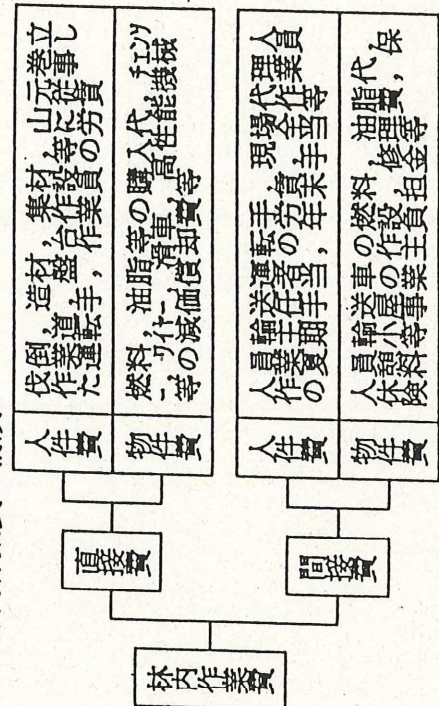 林内作業費
直接費
人件費
伐倒，造材，集材，山元巻立
作業道，盤台作設等に従事し
た運転手，作業員の労賃
物件費
燃料，油脂等の購入代，チェンソ
ー，ワイヤー，滑車，高性能機械
等の減価償却費等
間接費
人件費
人員輸送運転手，現場代理人
作業主任者の労賃，作業員
の夏期手当，年末手当金等
物件費
人員輸送車の燃料，油脂代，
休憩小屋の作設，修理費，保
険料等事業主負担金等